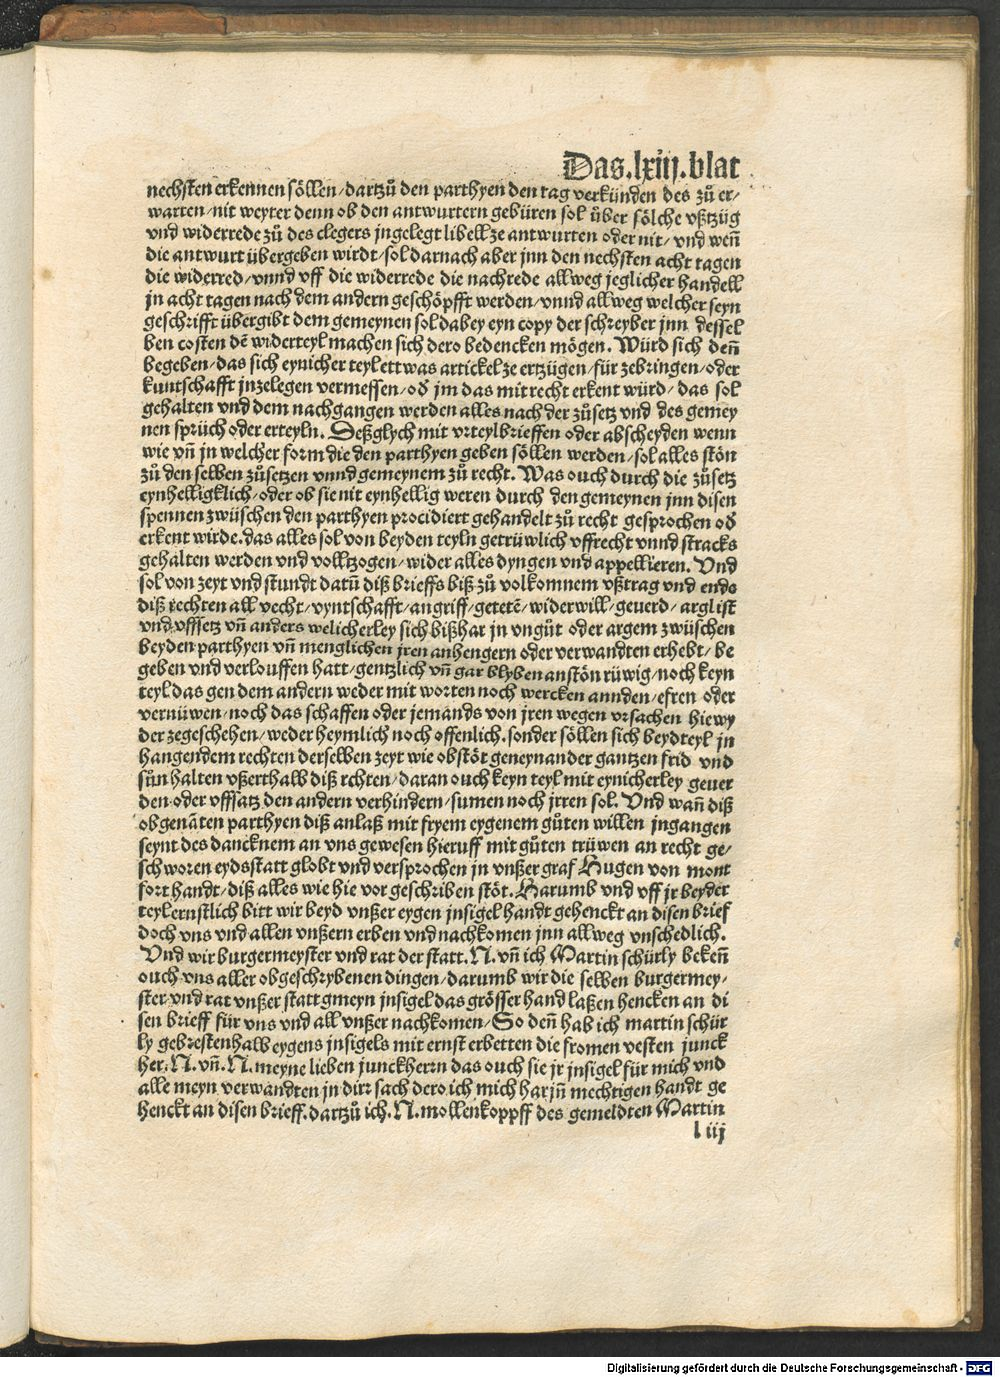 Das.lxiij.blat
nechsten erkennen söllen/dartzů den parthyen den tag verkünden des zů er⸗
warten/nit weyter denn ob den antwurtern gebüren sol über sölche vßtzüg
vnd widerrede zů des clegers jngelegt libell ze antwurten oder nit/vnd weñ
die antwurt übergeben wirdt/sol darnach aber jnn den nechsten acht tagen
die widerred/vnnd vff die widerrede die nachrede allweg jeglicher handell
jn acht tagen nach dem andern geschöpfft werden/vnnd allweg welcher seyn
geschrifft übergibt dem gemeynen sol dabey eyn copy der schreyber jnn dessel
ben costen dē widerteyl machen sich dero bedencken mögen. Würd sich deñ
begeben/das sich eynicher teyl ettwas artickel ze ertzügen/für zebringen/oder
kuntschafft jnzelegen vermessen/od jm das mit recht erkent würd/das sol
gehalten vnd dem nachgangen werden alles nach der zůsetz vnd des gemey
nen sprüch oder erteyln. Deßglych mit vrteylbrieffen oder abscheyden wenn
wie vñ jn welcher form die den parthyen geben söllen werden/sol alles stön
zů den selben zůsetzen vnnd gemeynem zů recht. Was ouch durch die zůsetz
eynhelligklich/oder ob sie nit eynhellig weren durch den gemeynen jnn disen
spennen zwüschen den parthyen procidiert gehandelt zů recht gesprochen od
erkent wirde.das alles sol von beyden teyln getrüwlich vffrecht vnnd stracks
gehalten werden vnd volltzogen/wider alles dyngen vnd appellieren. Vnd
sol von zeyt vnd stundt datū diß brieffs biß zů volkomnem vßtrag vnd ende
diß rechten all vecht/vyntschafft/angriff/getetē/widerwill/geuerd/arglist
vnd vffsetz vñ anders welicherley sich bißhar jn vngüt oder argem zwüschen
beyden parthyen vñ menglichen jren anhengern oder verwandten erhebt/be
geben vnd verlouffen hatt/gentzlich vñ gar blyben anstön rüwig/noch keyn
teyl das gen dem andern weder mit worten noch wercken annden/efren oder
vernüwen/noch das schaffen oder jemands von jren wegen vrsachen hiewy
der zegeschehen/weder heymlich noch offenlich.sonder söllen sich beydteyl jn
hangendem rechten derselben zeyt wie obstöt geneynander gantzen frid vnd
sůn halten vßerthalb diß rchten/daran ouch keyn teyl mit eynicherley geuer
den oder vffsatz den andern verhindern/sumen noch jrren sol. Vnd wañ diß
obgenāten parthyen diß anlaß mit fryem eygenem gůten willen jngangen
seynt des dancknem an vns gewesen hieruff mit gůten trüwen an recht ge⸗
schworen eydsstatt globt vnd versprochen jn vnßer graf Hugen von mont
fort handt/diß alles wie hie vor geschriben stöt. Harumb vnd vff jr beyder
teyl ernstlich bitt wir beyd vnßer eygen jnsigel handt gehenckt an disen brief
doch vns vnd allen vnßern erben vnd nachkomen jnn allweg vnschedlich.
Vnd wir burgermeyster vnd rat der statt.N.vñ ich Martin schürly bekeñ
ouch vns aller obgeschrybenen dingen/darumb wir die selben burgermey⸗
ster vnd rat vnßer statt gmeyn jnsigel das grösser hand laßen hencken an di
sen brieff für vns vnd all vnßer nachkomen/So deñ hab ich martin schür
ly gebrestenhalb eygens jnsigels mit ernst erbetten die fromen vesten junck
her.N.vñ.N.meyne lieben junckherrn das ouch sie jr jnsigel für mich vnd
alle meyn verwandten jn dirr sach dero ich mich har jñ mechtigen handt ge
henckt an disen brieff.dartzů ich.N.mollenkoppff des gemeldten Martin
l iij
Digitalisierung gefördert durch die Deutsche Forschungsgemeinschaft - DFG